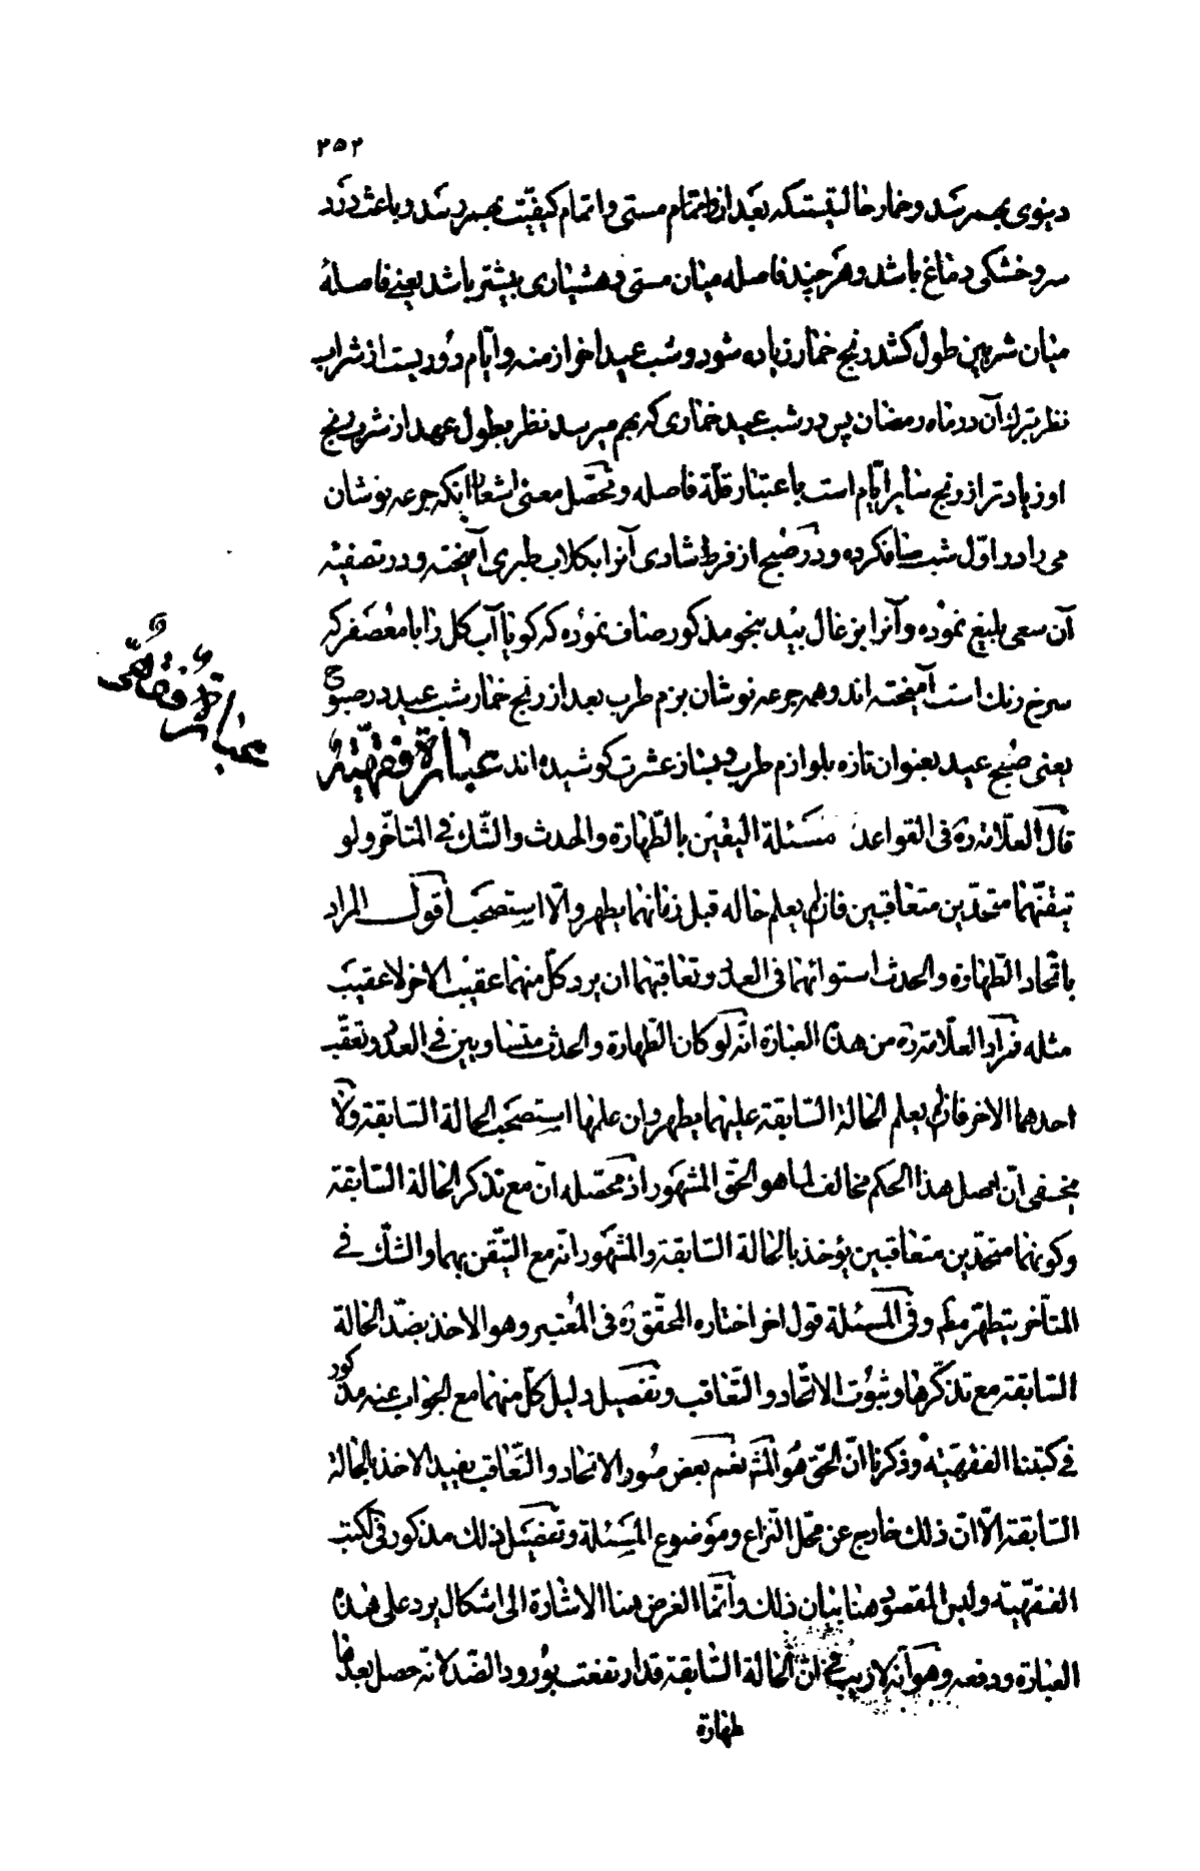 ۲۵۲
دینوی بهمرسد و خمار حالیتستکه بعد از اتمام مستی و اتمام کیفیّت بهمرسد و باعث درد
سر و خشکی دماغ باشد و هر چند فاصله میان مستی و هشیاری بیشتر باشد یعنی فاصلهٔ
میان شربین طول کشد رنج خمار زیاده شود و شب عید اخر ازمنه و ایّام دوریست از شراب
نظر بترک آن در ماه رمضان پس در شب عید خماری که بهم میرسد نظر بطول عهد از شرب رنج
او زیادتر از رنج سایر ایّام است باعتبار قلّة فاصله و محصّل معنی اشعار آنکه جرعه نوشان
می را در اوّل شب صاف کرده و در صبح از فرط شادی آنرا بکلاب طبری آمیخته و در تصفیه
آن سعی بلیغ نموده و آنرا بزغال بید بنحو مذکور صاف نموده که کویا آب کل را با معصفر که
سرخ رنك است آمیخته اند و همه جرعه نوشان بزم طرب بعد از رنج خمار شب عید در صبوح
یعنی صبح عید بعنوان تازه بلوازم طرب و ساز عشرت کوشیده اند عبارة فقهیّة
عبارة فقهی
قال العلّامة ره فی القواعد مسئلة الیقین بالطّهارة والحدث والشّك فی المتأخّر ولو
تیقّنهما متحدین متعاقبین فان لم یعلم حاله قبل زمانهما یطهر والّا استصحب اقول المراد
باتّحاد الطّهارة والحدث استوائهما فی العدد وتعاقبهما ان یرد کلّ منهما عقیب الاخر لا عقیب
مثله فمراد العلّامة ره من هذه العبارة انّه لو کان الطّهارة والحدث متساویین فی العدد وتعقّب
احدهما الاخر فان لم یعلم الحالة السّابقة علیهما یطهر وان علمها استصحب الحالة السّابقة ولا
یخفی انّ اصل هذا الحکم مخالف لما هو الحقّ المشهور اذ محصّله انّ مع تذکر الحالة السّابقة
وکونهما متحدین متعاقبین یؤخذ بالحالة السّابقة والمشهور انّه مع التیّقن بهما والشّك فی
المتأخر یتطهّر مطم وفی المسئلة قول اخر اختاره المحقّق ره فی المعتبر وهو الاخذ بضدّ الحالة
السّابقة مع تذکّرها وثبوت الاتّحاد والتّعاقب وتفصیل دلیل کلّ منهما مع الجواب عنه مذکور
فی کتبنا الفقهیّة وذکرنا انّ الحقّ هو المشهـ نعم بعض صور الاتحاد والتّعاقب یفید الاخذ بالحالة
السّابقة الّا انّ ذلك خارج عن محل النّزاع وموضوع المسئلة وتفصیل ذلك مذکور فی الکتب
الفقهیّة ولیس المقصود هنا بیان ذلك وانّما الغرض هنا الاشارة الی اشکال یرد علی هذه
العبارة ودفعه وهو انّه لا ریب فی انّ الحالة السّابقة قد ارتفعت بورود الضّد لانّه حصل بعدها
طهارة